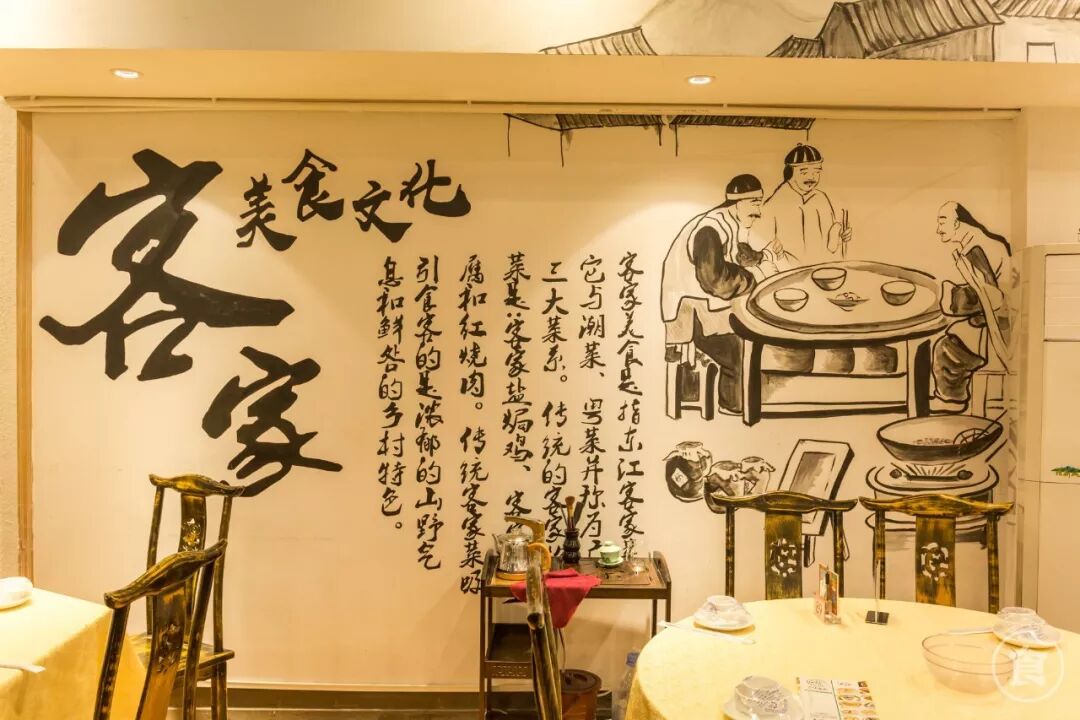 客家
美食文化
客家美食是指东江客家
它与潮菜、粤菜并称为
三大菜系。传统的客家
菜是:客家盐焗鸡、客
腐和红烧肉。传统客家菜
引食客的是浓郁的山野气
息和鲜的乡村特色。
食